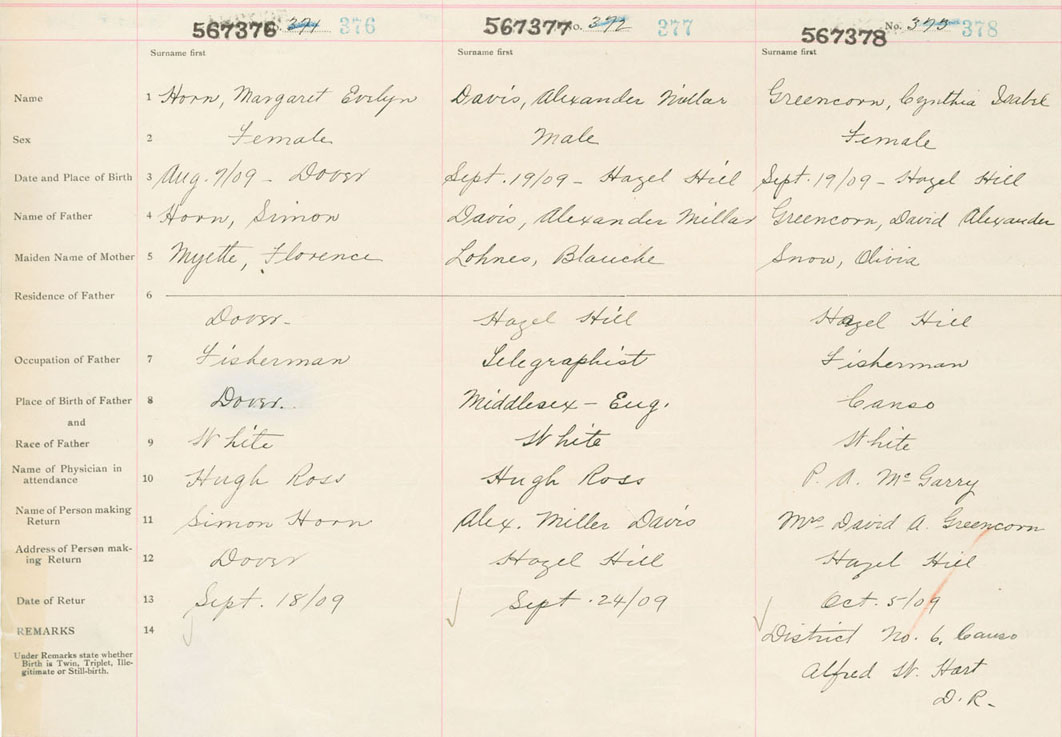 567376 No. 371 376 567377 No. 372 377 567378 No. 373 378
Surname first Surname first Surname first
Name 1 Horn, Margaret Evelyn Davis, Alexander Millar Greencorn, Cynthia Isabel
Sex 2 Female Male Female
Date and Place of Birth 3 Aug. 7/09 - Dover Sept. 19/09 - Hazel Hill Sept. 19/09 - Hazel Hill
Name of Father 4 Horn, Simon Davis, Alexander Millar Greencorn, David Alexander
Maiden Name of Mother 5 Myette, Florence Lohnes, Blanche Snow, Olivia
Residence of Father 6
Dover. Hazel Hill Hazel Hill
Occupation of Father 7 Fisherman Telegraphist Fisherman
Place of Birth of Father 8 Dover. Middlesex - Eng. Canso
and
Race of Father 9 White White White
Name of Physician in
attendance 10 Hugh Ross Hugh Ross P. A. McGarry
Name of Person making
Return 11 Simon Horn Alex. Miller Davis Mrs David A. Greencorn
Address of Person mak-
ing Return 12 Dover Hazel Hill Hazel Hill
Date of Retur 13 Sept. 18/09 Sept. 24/09 Oct. 5/09
REMARKS 14 District No. 6, Canso
Under Remarks state whether
Birth is Twin, Triplet, Ille-
gitimate or Still-birth.
Alfred W. Hart
D.R.